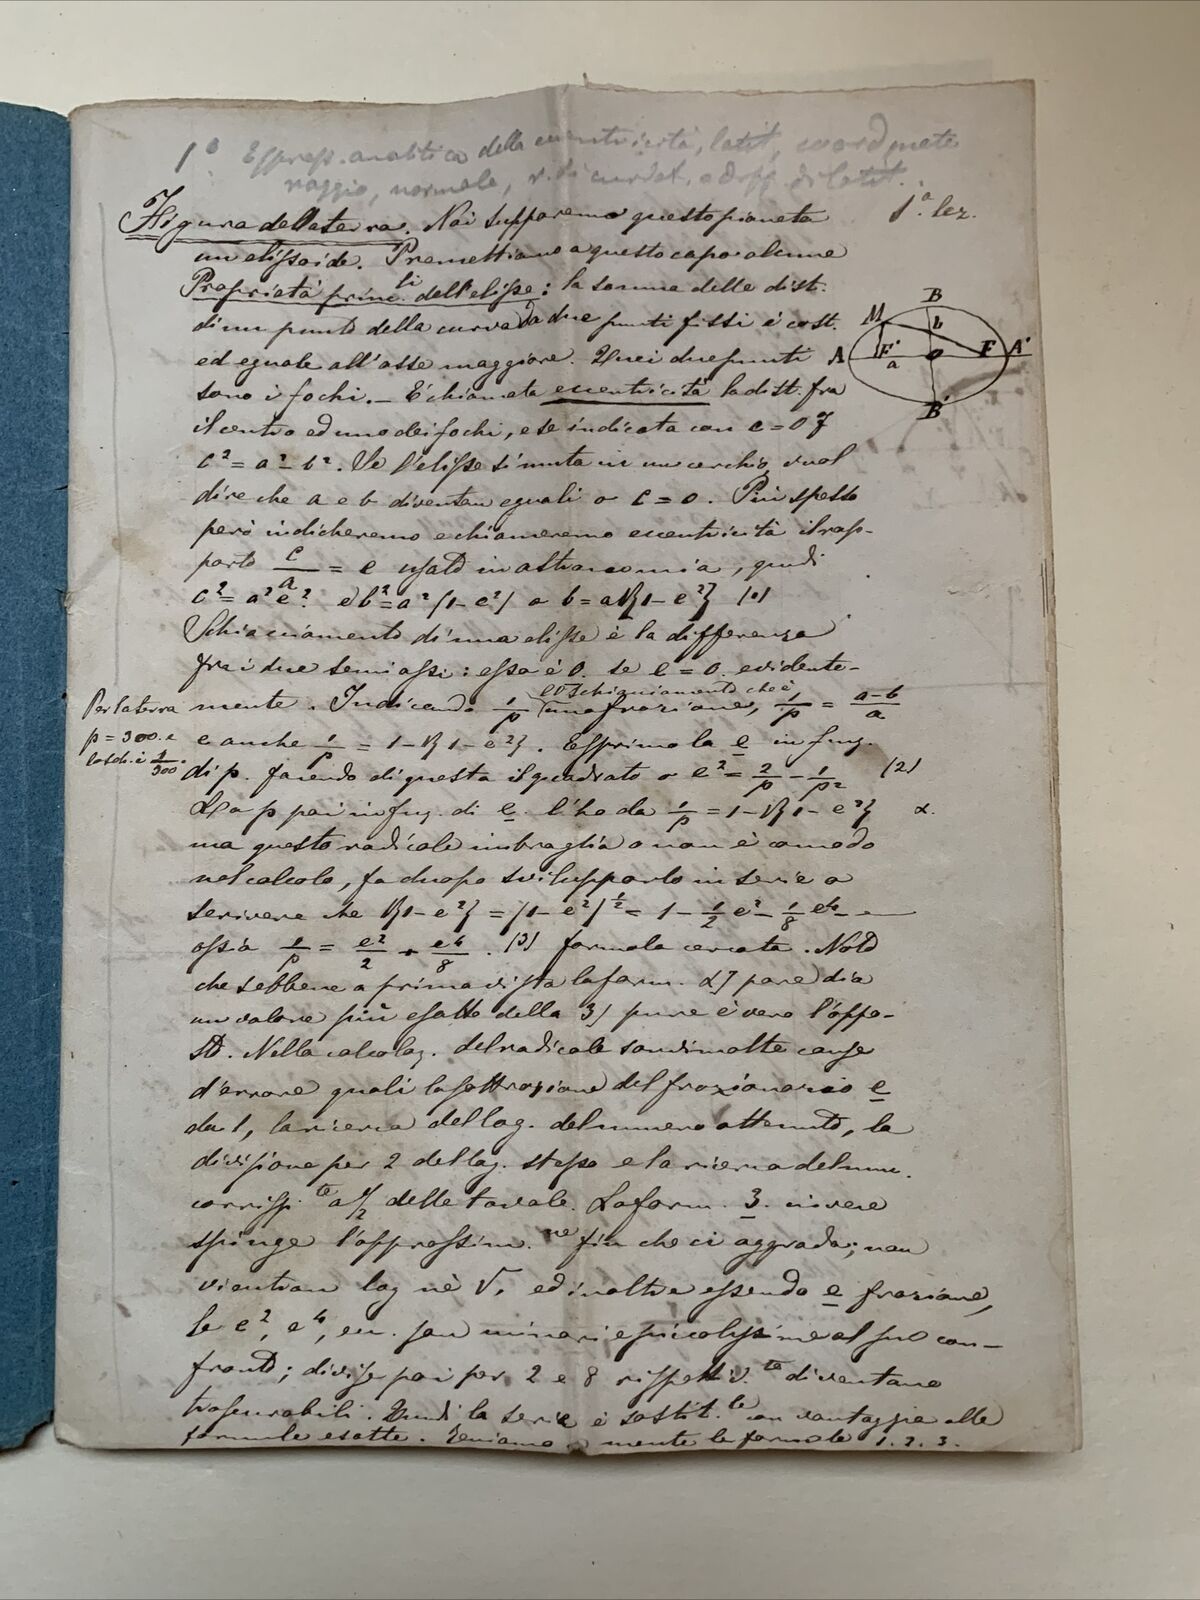 1° Espress. analitica della eccentricità, latit, coordinate
raggio, normale, r. di curvat. e diff. di latit.
Figura della terra. Noi supporremo questo pianeta 1.ª lez.
un elissoide. Premettiamo a questo capo alcune
Proprietà princ.li dell'elisse: la somma delle dist.
di un punto della curva da due punti fissi è cost.
ed eguale all'asse maggiore. Quei due punti
sono i fochi. — È chiamata eccentricità la dist. fra
il centro ed uno dei fochi, e se indicata con c = OF
c² = a² - b². Se l'elisse si muta in un cerchio, vuol
dire che a e b diventan eguali e c = 0. Più spesso
però indicheremo e chiameremo eccentricità il rap-
porto c/a = e usato in astronomia, quindi
c² = a²e². e b² = a²(1-e²) e b = a√{1-e²} (1)
Schiacciamento di una elisse è la differenza
fra i due semiassi: essa è 0. se e = 0. evidente-
mente. Indicando 1/p lo schiacciamento che è una frazione, 1/p = (a-b)/a
Per la terra
p = 300. e
lo sch. è 1/300.
e anche 1/p = 1-√{1-e²}. Esprimo la e in funz.
di p. facendo di questa il quadrato e e² = 2/p - 1/p² (2)
La p poi in funz. di e. l'ho da 1/p = 1-√{1-e²} α.
ma questo radicale imbroglia e non è comodo
nel calcolo, fa duopo svilupparlo in serie e
scrivere che √{1-e²} = (1-e²)^½ = 1 - ½e² - ⅛e⁴ — —
ossia 1/p = e²/2 + e⁴/8. (3) formola cercata. Noto
che sebbene a prima vista la form. α) pare dia
un valore più esatto della 3) pure è vero l'oppo-
sto. Nella calcolaz. del radicale sonvi molte cause
d'errore quali la sottrazione del frazionario e
da 1, la ricerca del log. del numero ottenuto, la
divisione per 2 del log. stesso e la ricerca del num.
corrisp.te a l/2 delle tavole. La form. 3. invece
spinge l'approssim.ne fin che ci aggrada; non
vientran log nè √, ed inoltre essendo e frazione,
le e², e⁴, ecc. son minori e piccolissime al suo con-
fronto; divise poi per 2 e 8 rispettiv.te diventano
trascurabili. Quindi la serie è sostit.le con vantaggio alle
formule esatte. Teniamo a mente le formole 1. 2. 3.
B
M b
A F' a O F A'
B'